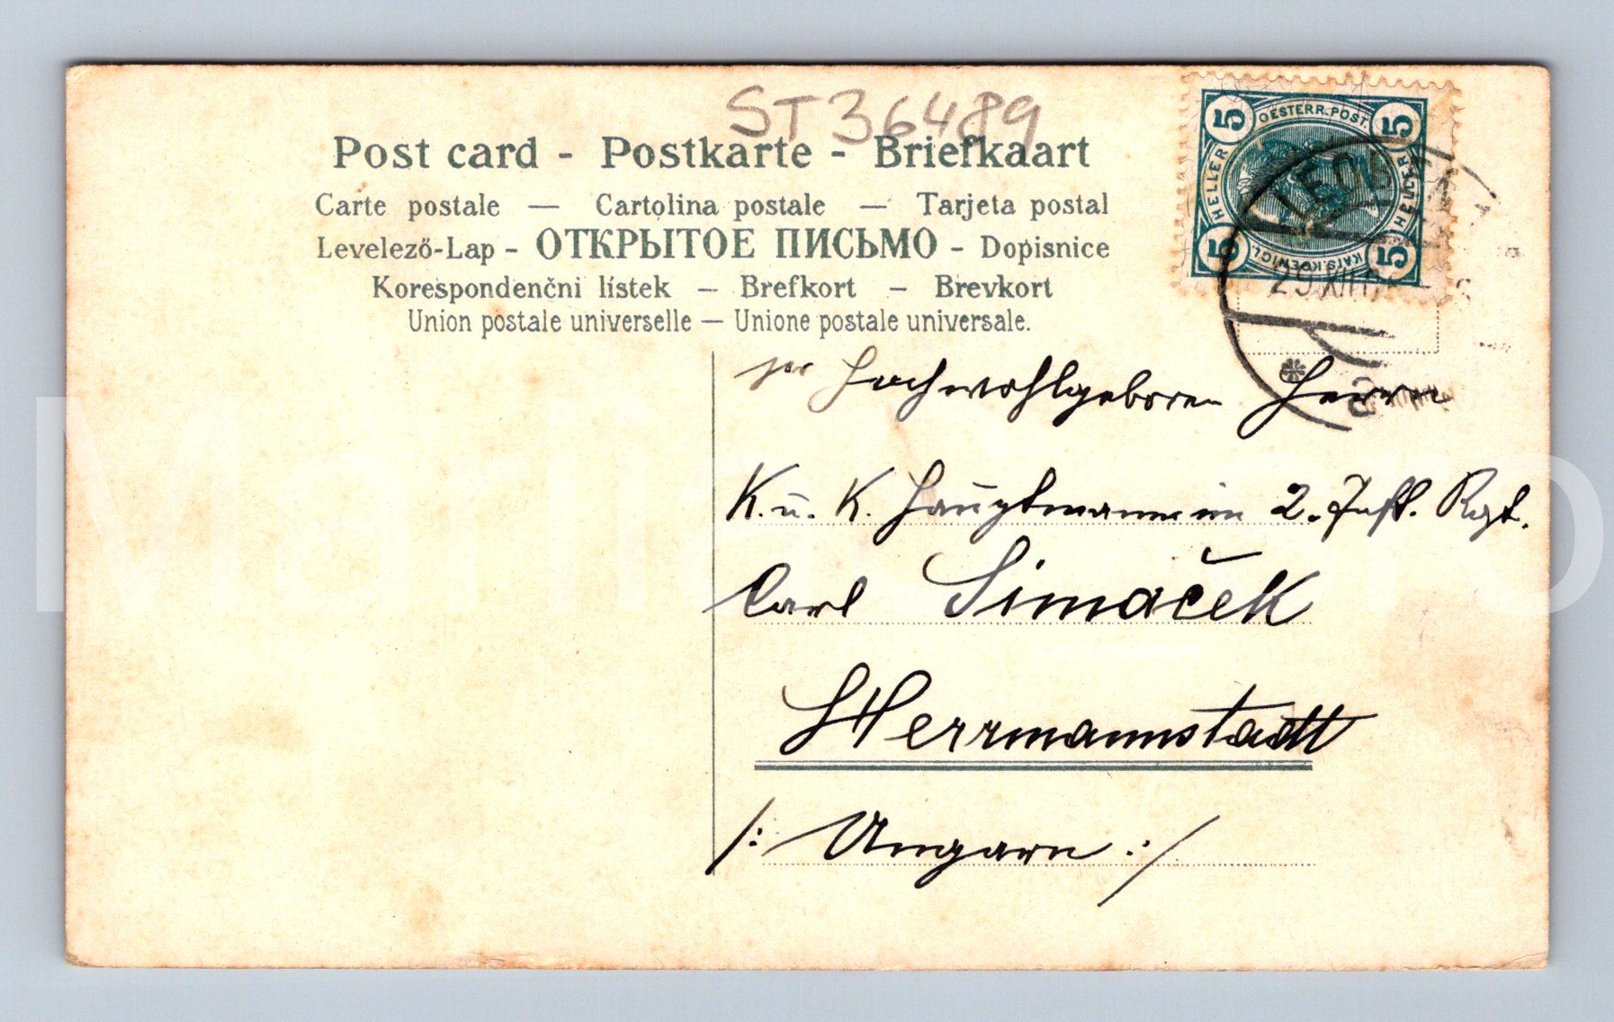 ST36489
Post card - Postkarte - Briefkaart
Carte postale — Cartolina postale — Tarjeta postal
Levelező-Lap - ОТКРЫТОЕ ПИСЬМО - Dopisnice
Korespondenčni lístek — Brefkort — Brevkort
Union postale universelle — Unione postale universale.
5 OESTERR. POST. 5
HELLER HELLER
5 KAIS. KOENIGL. 5
LEOB
29 XII
Hochwohlgeboren Herrn
K. u. K. Hauptmann im 2. Inft. Rgt.
Carl Simaček
Herrmannstadt
/: Ungarn :/